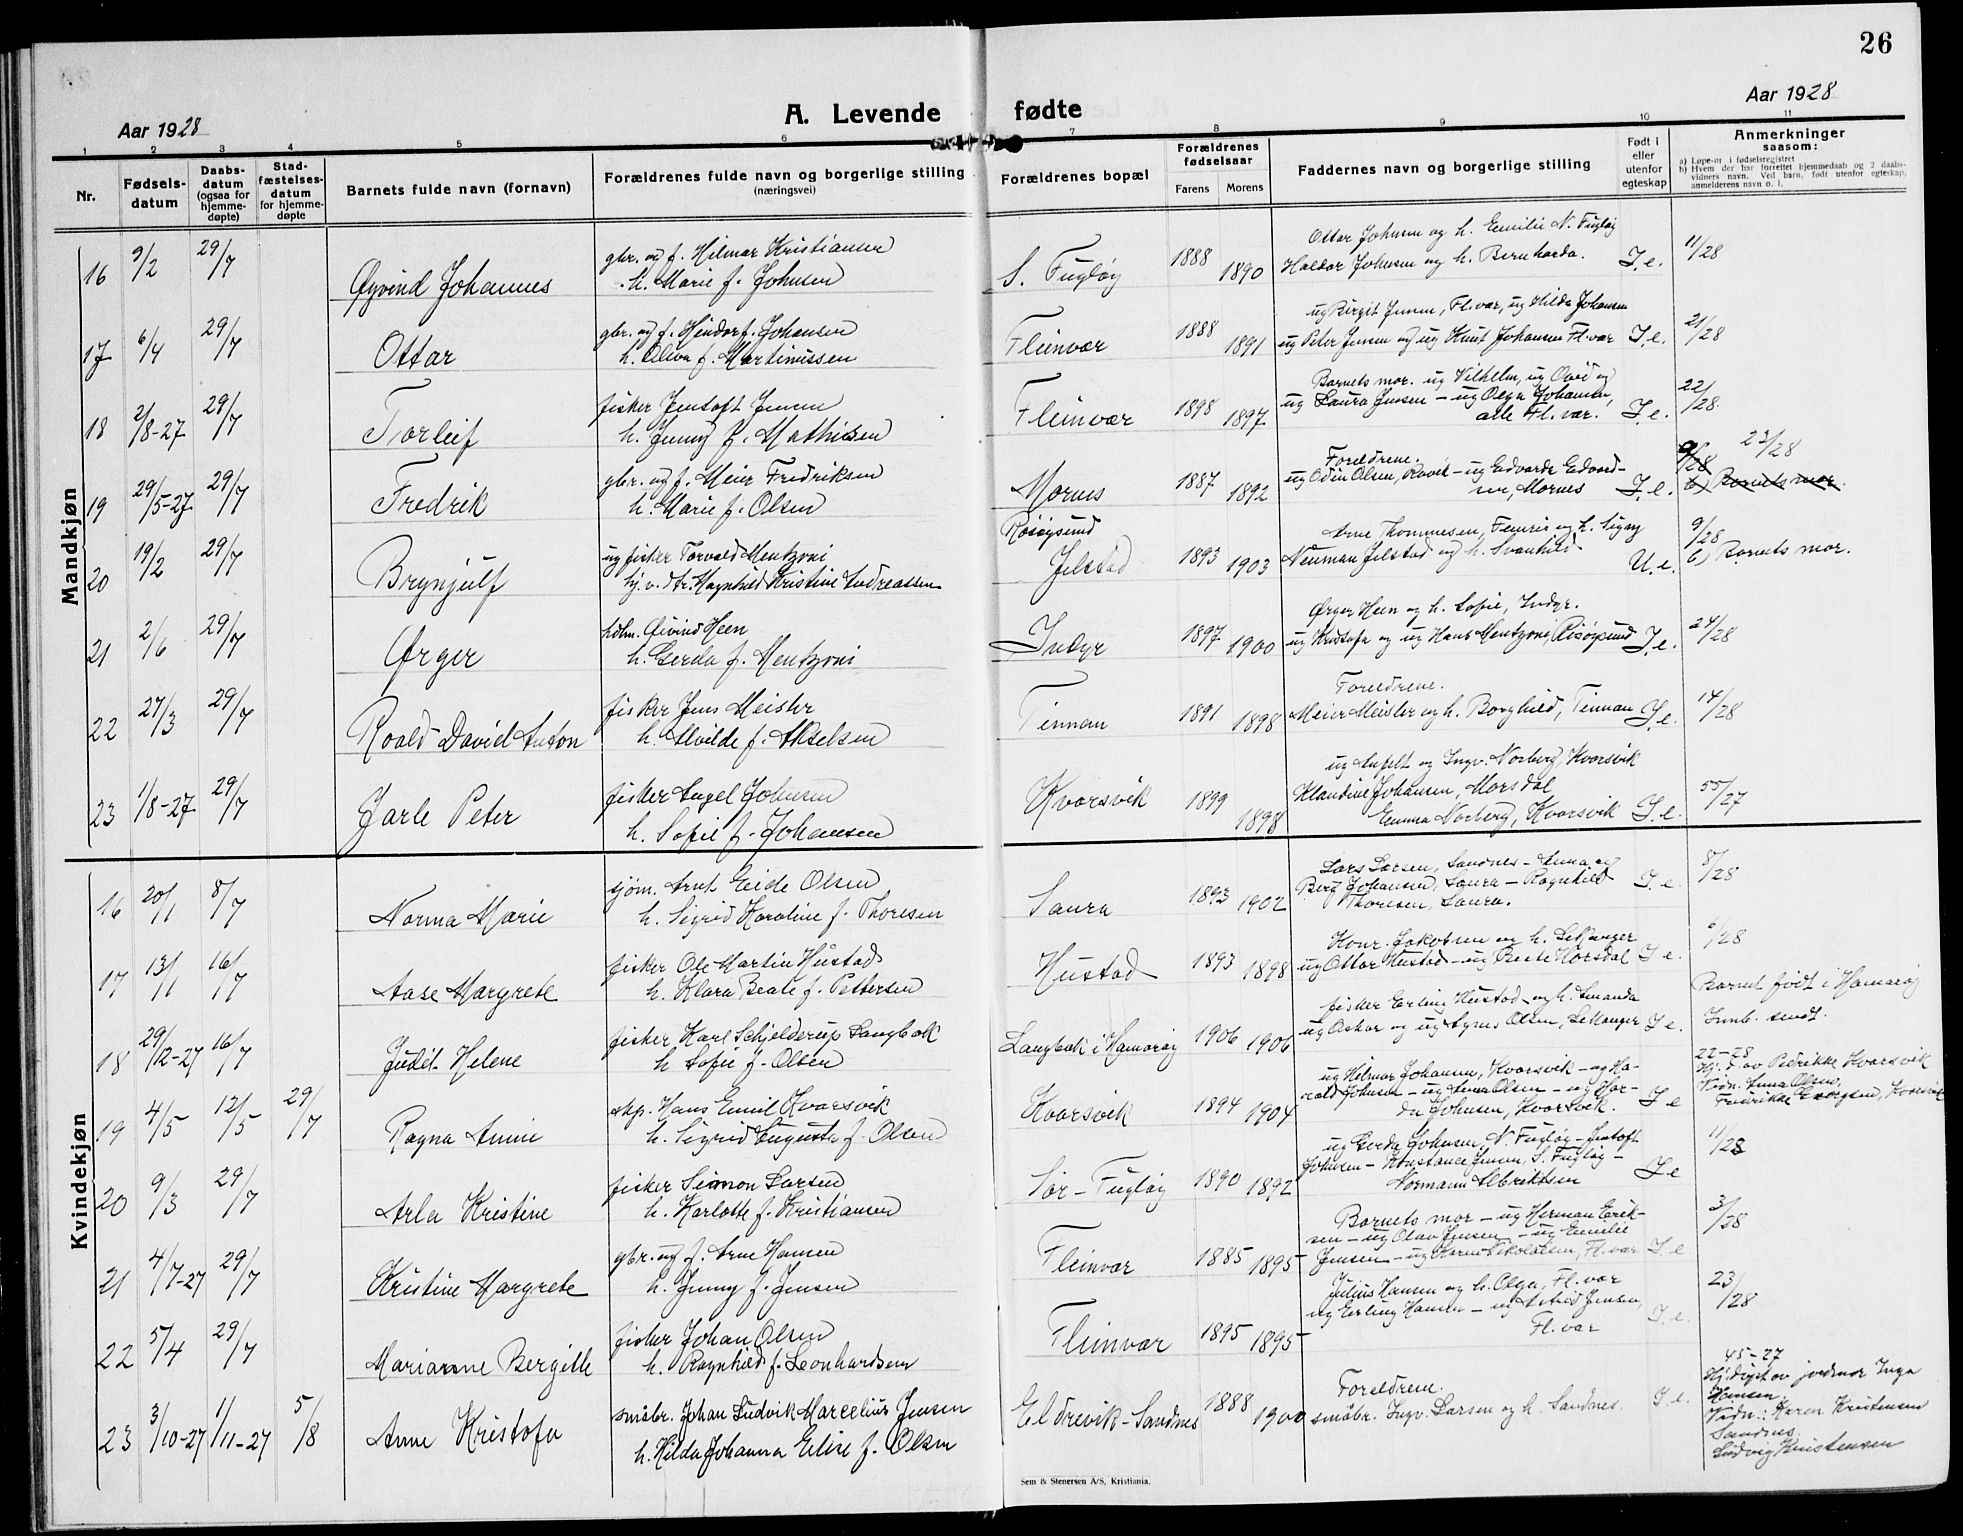 26
Aar 1928
A. Levende fødte
Aar 1928
1 2 3 4 5 6 7 8 9 10 11
Nr.
Fødsels-
datum
Daabs-
datum
(ogsaa for
hjemme-
døpte)
Stad-
fæstelses-
datum
for hjemme-
døpte
Barnets fulde navn (fornavn)
Forældrenes fulde navn og borgerlige stilling
(næringsvei)
Forældrenes bopæl
Forældrenes
fødselsaar
Farens Morens
Faddernes navn og borgerlige stilling
Født i
eller
utenfor
egteskap
Anmerkninger
saasom:
a) Løpe-nr i fødselsregistret
b) Hvem der har forrettet hjemmedaab og 2 daabs-
vidners navn. Ved barn, født utenfor egteskap,
anmelderens navn o. l.
Mandkjøn
16 9/2 29/7 Øyvind Johannes
gbr. og f. Hilmar Kristiansen
h. Marie f. Johnsen
S. Fugløy 1888 1890
Ottar Johnsen og h. Emilie N. Fugløy
Haldor Johnsen og h. Bernharda.
I. e. 11/28
17 6/4 29/7 Ottar
gbr. og f. Heidorf Johansen
h. Oliva f. Martinussen
Fleinvær 1888 1891
ug Birgit Jensen, Fl.vær, ug Hilda Johansen
ug Peter Jensen og ug Knut Johansen Fl.vær
I. e. 21/28
18 2/8-27 29/7 Torleif
fisker Jentoft Jensen
h. Jenny f. Mathisen
Fleinvær 1898 1897
Barnets mor. ug Vilhelm, ug Ovid og
ug Laura Jensen – ug Olga Johansen,
alle Fl.vær.
I. e. 22/28.
19 29/5-27 29/7 Fredrik
gbr. og f. Meier Fredriksen
h. Marie f. Olsen
Mornes 1887 1892
Foreldrene.
ug Odin Olsen, Røvik – ug Edvarda Edvard-
sen, Mornes
I. e. 9/28 23/28
b) Barnets mor.
20 19/2 29/7 Brynjulf
ug fisker Torvald Mentzoni
hj. v. dtr. Magnhild Kristine Andreassen
Risøysund
Jelstad 1893 1903
Arne Thommesen, Femris og h. Signy
Neuman Jelstad og h. Svanhild
U. e. 9/28
b) Barnets mor.
21 2/6 29/7 Ørger
hdlm. Øivind Heen
h. Gerda f. Mentzoni
Indyr 1897 1900
Ørger Heen og h. Sofie, Indyr.
ug Kristofa og ug Hans Mentzoni, Risøysund
I. e. 24/28
22 27/3 29/7 Roald David Anton
fisker Jens Meisler
h. Alvilde f. Akselsen
Tinnan 1891 1898
Foreldrene.
Meier Meisler og h. Borghild, Tinnan
I. e. 14/28
23 1/8-27 29/7 Jarle Peter
fisker Angel Johnsen
h. Sofie f. Johansen
Kvarsvik 1899 1898
ug Anfelt og Ingv. Norberg, Kvarsvik
Klaudine Johansen, Morsdal
Emma Norberg, Kvarsvik
I. e. 55/27
Kvindekjøn
16 20/1 8/7 Norma Marie
sjøm. Arnt Eide Olsen
h. Sigrid Karoline f. Thoresen
Saura 1893 1902
Lars Larsen, Sandnes – Anna og
Berg Johansen, Saura – Ragnhild
Thoresen, Saura.
I. e 8/28
17 13/1 16/7 Aase Margrete
fisker Ole Martin Hustad
h. Klara Beate f. Pettersen
Hustad 1893 1898
Konr. Jakobsen og h. Lekanger
ug Ottar Hustad – ug Beate Horsdal
I e. 6/28
18 29/12-27 16/7 Judit Helene
fisker Karl Schjelderup Langbak
h. Sofie f. Olsen
Langbak i Hamarøy 1906 1906
fisker Erling Hustad og h. Amanda
ug Oskar og ug Agnes Olsen, Lekanger
I e.
Barnet født i Hamarøy
Innb. sendt.
19 4/5 12/5 29/7 Ragna Annie
skp. Hans Emil Kvarsvik
h. Sigrid Augusta f. Olsen
Kvarsvik 1894 1904
ug Hilmar Johansen, Kvarsvik – ug Ha-
rald Johnsen – ug Anna Olsen – ug Har-
da Johnsen, Kvarsvik.
I e
22–28
Hj.d. av Pedrikke Kvarsvik
Vidn. Anna Olsen,
20 9/3 29/7 Arla Kristine
fisker Simon Larsen
h. Karlotte f. Kristiansen
Sør–Fugløy 1890 1892
ug Gerda Johnsen, N. Fugløy – Jentoft
Johnsen – Konstance Jensen, S. Fugløy –
Normann Albriktsen
I e 11/28
21 4/7-27 29/7 Kristine Margrete
gbr. og f. Arne Hansen
h. Jenny f. Jensen
Fleinvær 1885 1895
Barnets mor – ug Herman Erik-
sen – ug Olav Jensen – ug Emilie
Jensen – ug Karen Nikolaisen, Fl.vær
I e. 3/28
22 5/4 29/7 Marianne Bergitte
fisker Johan Olsen
h. Ragnhild f. Leonhardsen
Fleinvær 1895 1895
Julius Hansen og h. Olga, Fl. vær
ug Erling Hansen – ug Astrid Jensen,
Fl. vær
I. e. 23/28
23 3/10-27 1/11-27 5/8 Anne Kristofa
småbr. Johan Ludvik Marcelius Jensen
h. Hilda Johanna Elise f. Olsen
Eldrevik–Sandnes 1888 1900
Foreldrene.
småbr. Ingv. Larsen og h. Sandnes.
I. e.
45–27
Hj.døpt av jordmor Inga
Hansen.
Vidn.: Karen Kristensen
Sandnes.
Ludvig Kristensen
Sem & Stenersen A/S, Kristiania.